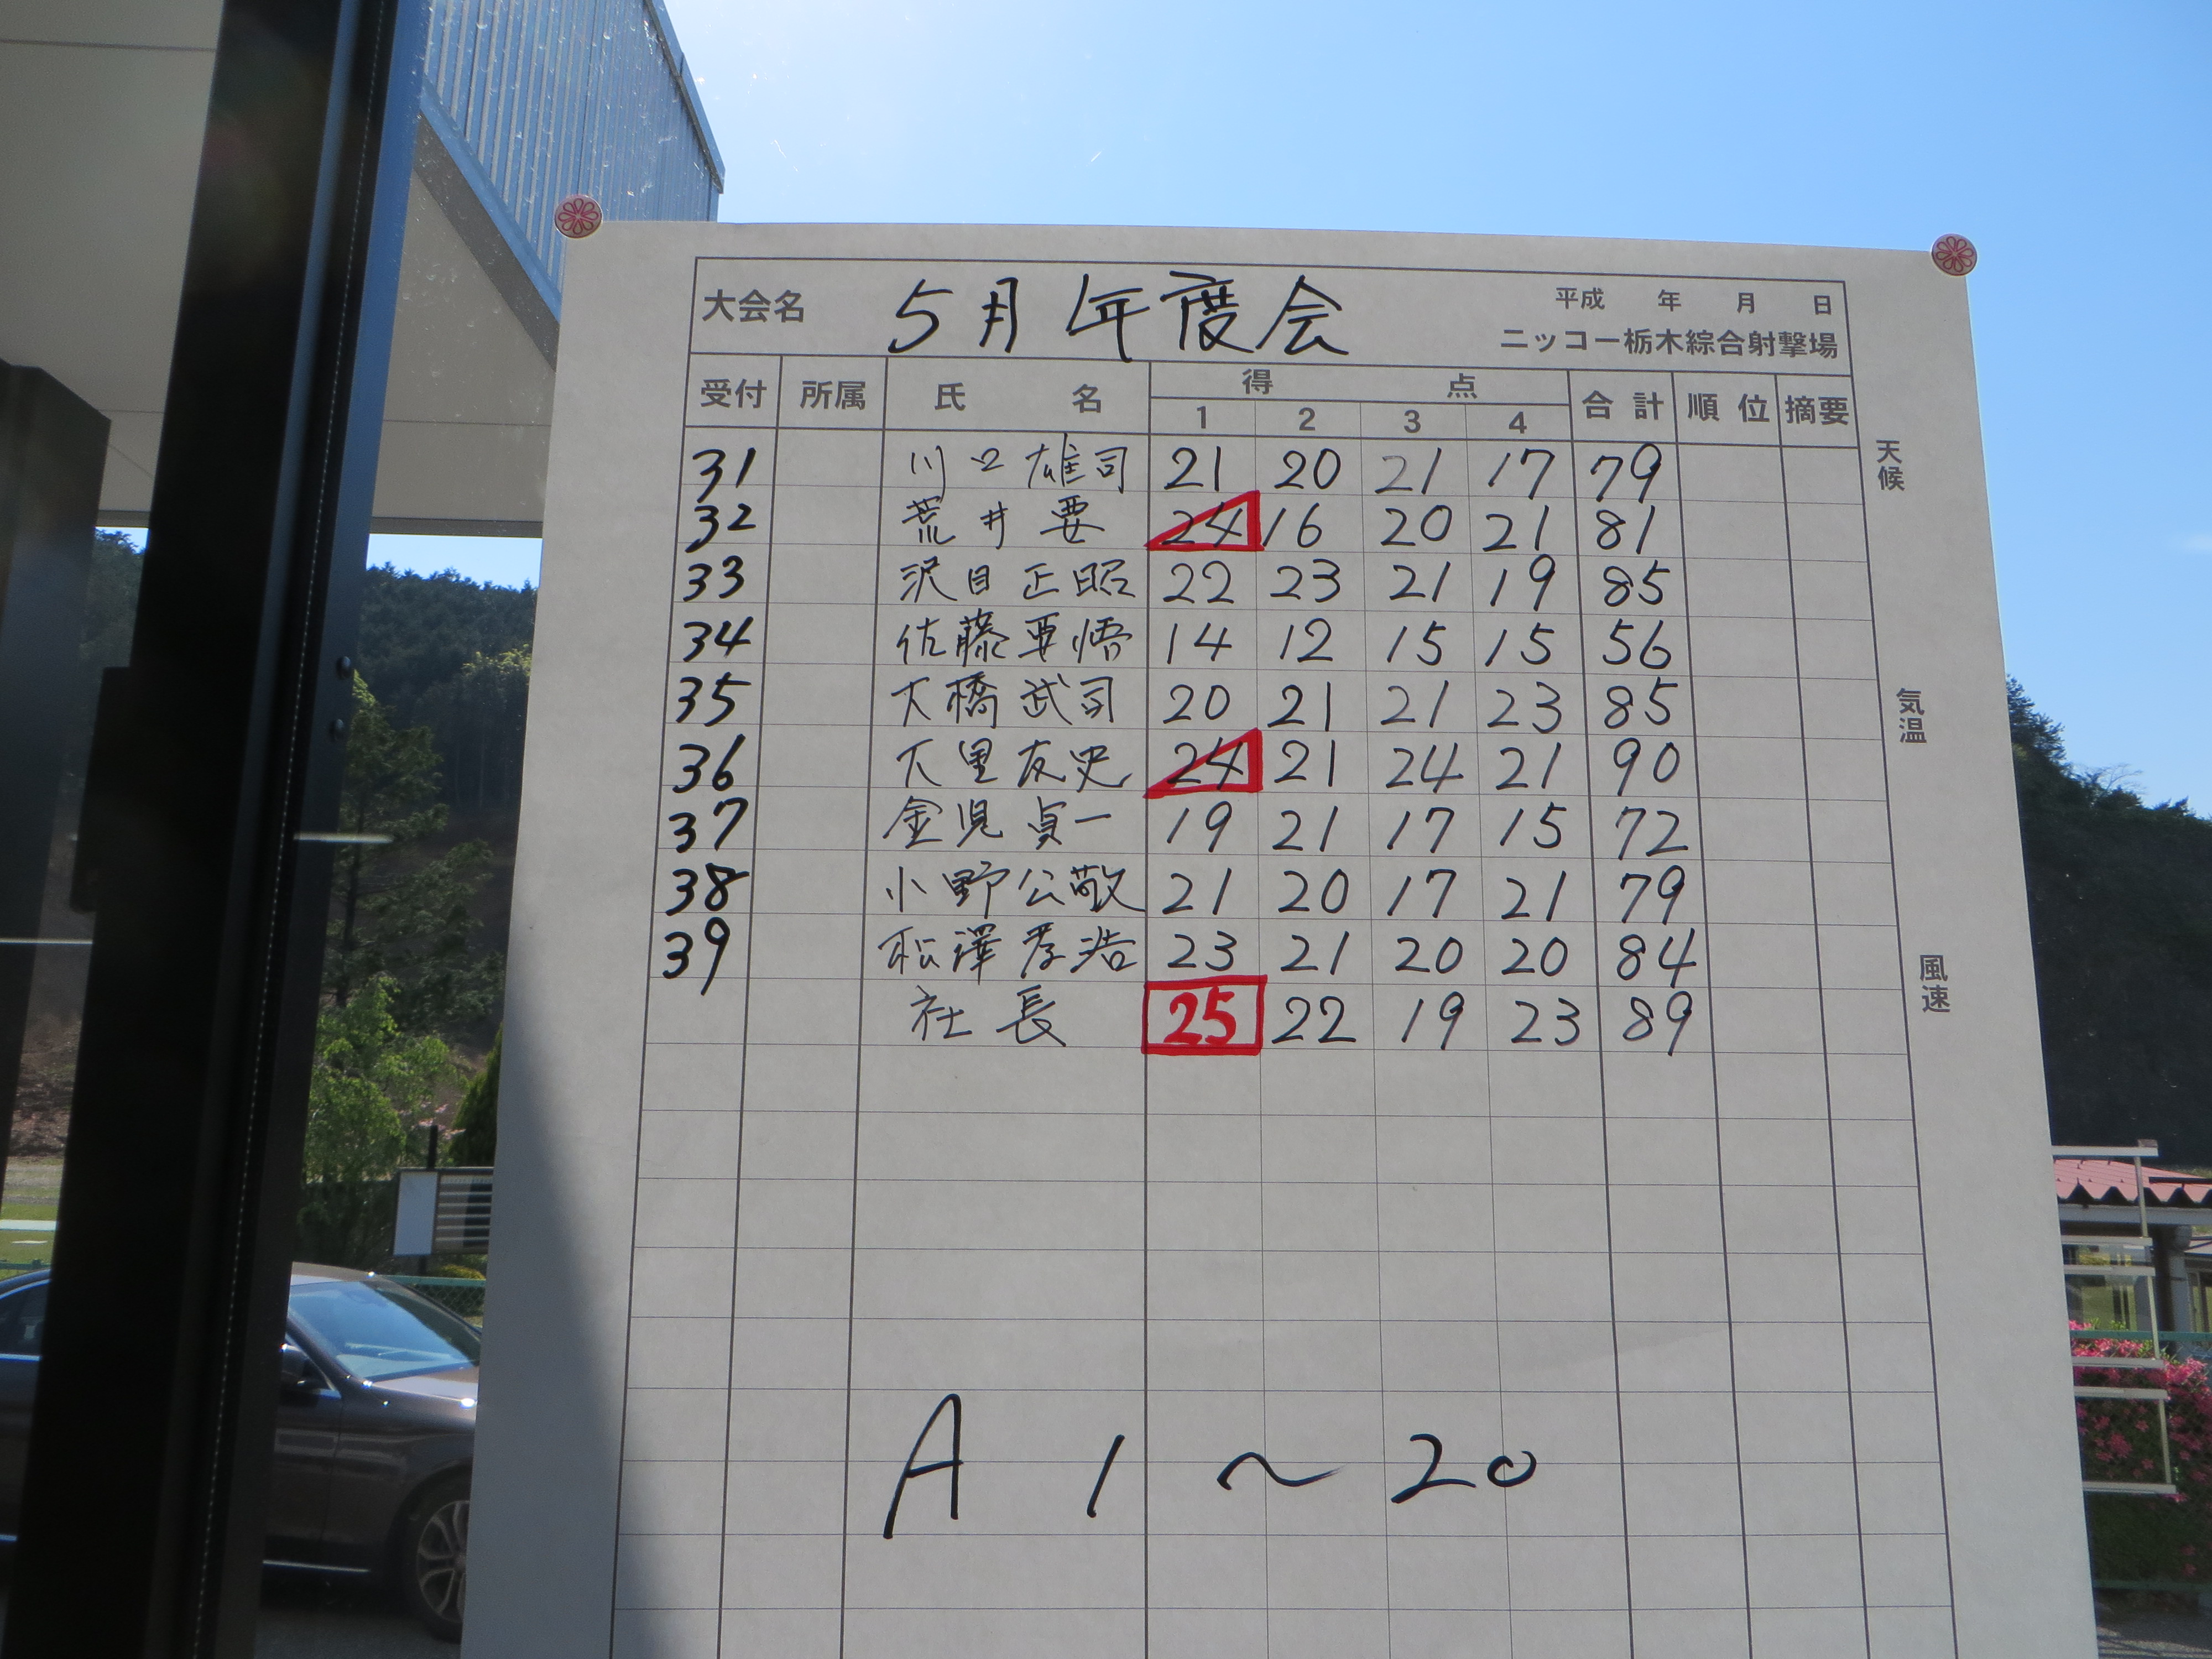 大会名 5月年度会 平成 年 月 日
ニッコー栃木綜合射撃場
受付 所属 氏 名 得 点 合計 順位 摘要
1 2 3 4
31 川口雄司 21 20 21 17 79
32 荒井要 24 16 20 21 81
33 沢目正昭 22 23 21 19 85
34 佐藤要悟 14 12 15 15 56
35 大橋武司 20 21 21 23 85
36 大里友史 24 21 24 21 90
37 金児貞一 19 21 17 15 72
38 小野公敬 21 20 17 21 79
39 松澤孝浩 23 21 20 20 84
社長 25 22 19 23 89
A 1 ~ 20
天候
気温
風速